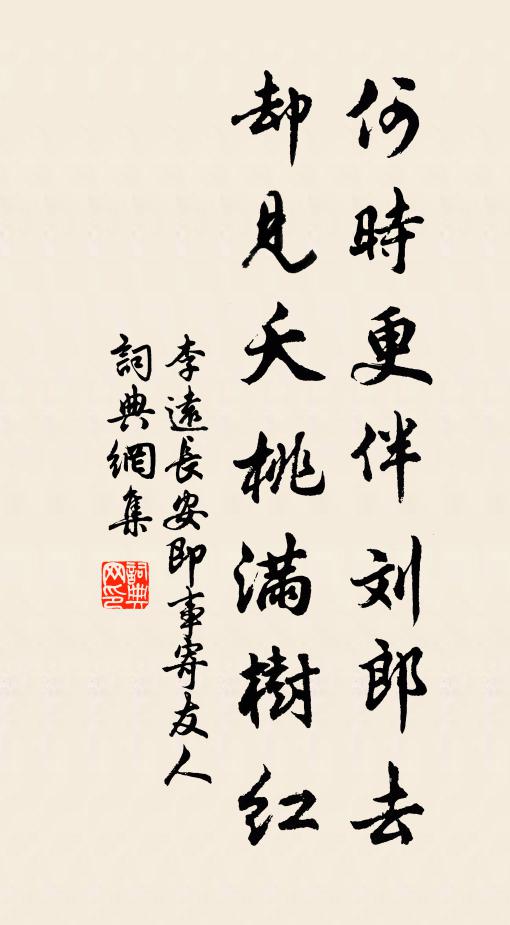 何時更伴刘郎去
却見夭桃滿樹红
李遠長安即事寄友人
詞典網集
詞典網印